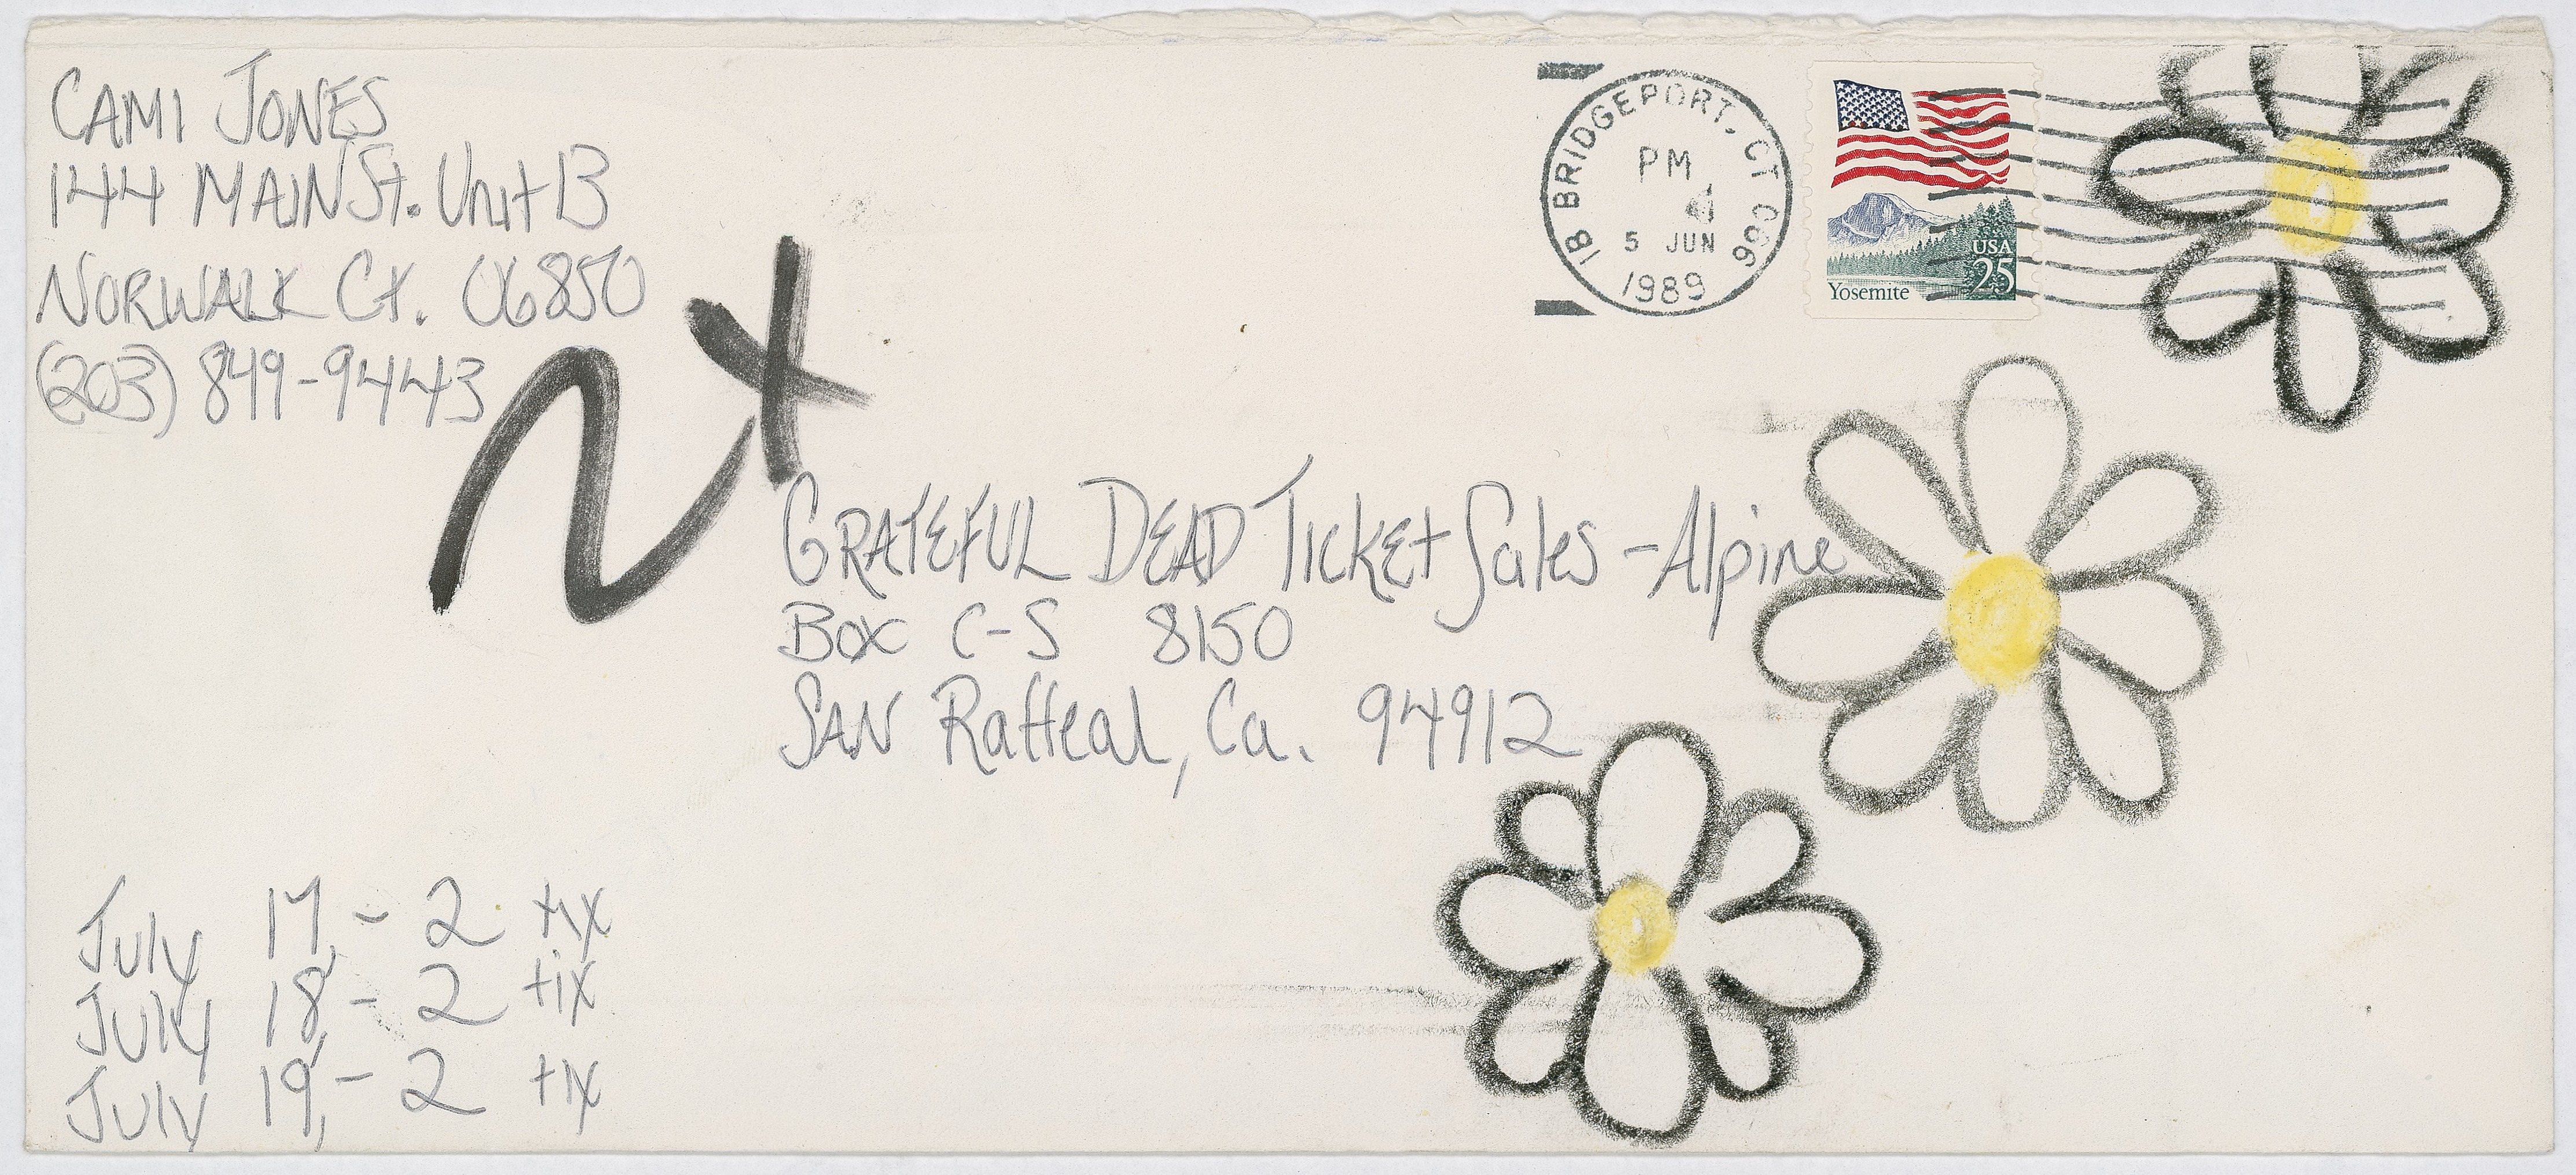 CAMI JONES
144 MAIN St. Unit B
NORWALK Ct. 06850
(203) 849-9443
IB BRIDGEPORT, CT 066
PM
5 JUN
1989
USA
25
Yosemite
GRATEFUL DEAD TICKET Sales - Alpine
Box C-S 8150
SAN Raffeal, Ca. 94912
July 17, - 2 tix
July 18, - 2 tix
July 19, - 2 tix